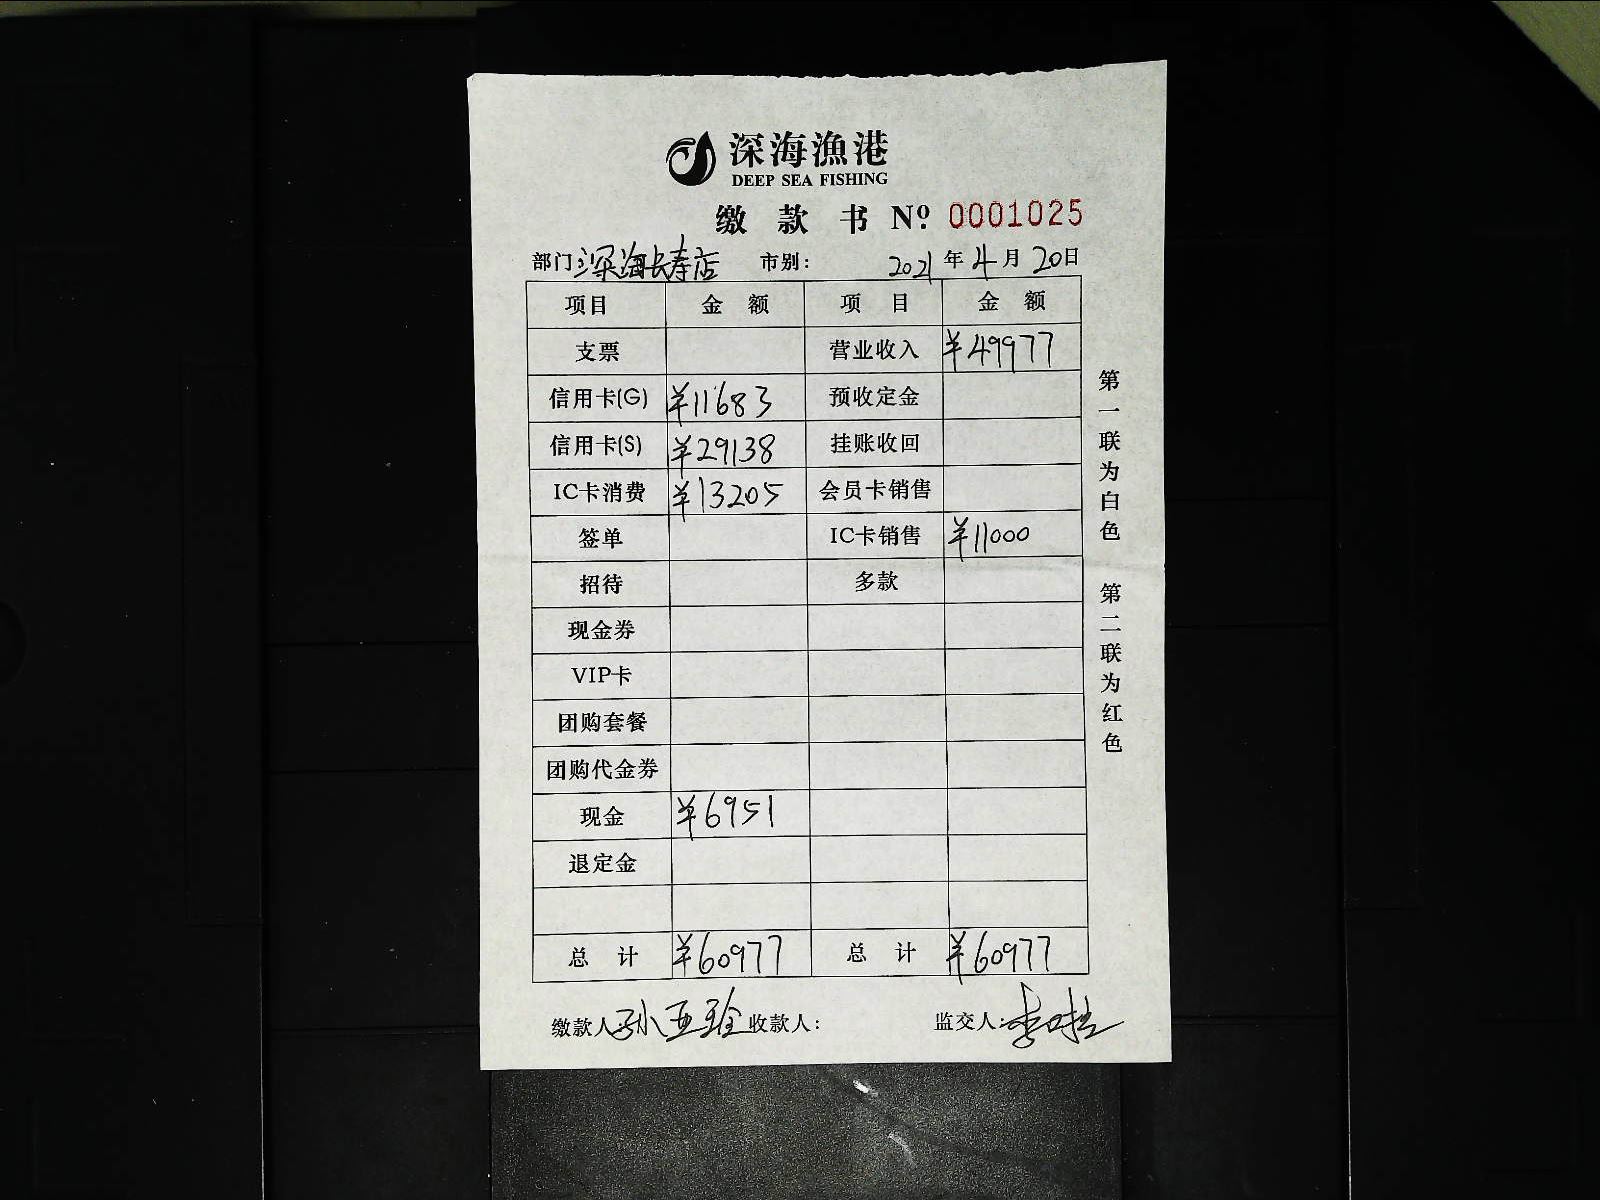 深海漁港
DEEP SEA FISHING
缴款书 Nº. 0001025
部门:深海长寿店 市别: 2021年4月20日
项目 金额 项目 金额
支票 营业收入 ¥49977
信用卡(G) ¥11683 预收定金
信用卡(S) ¥29138 挂账收回
IC卡消费 ¥13205 会员卡销售
签单 IC卡销售 ¥11000
招待 多款
现金券
VIP卡
团购套餐
团购代金券
现金 ¥6951
退定金
总计 ¥60977 总计 ¥60977
缴款人孙亚玲 收款人: 监交人:
第一联为白色 第二联为红色